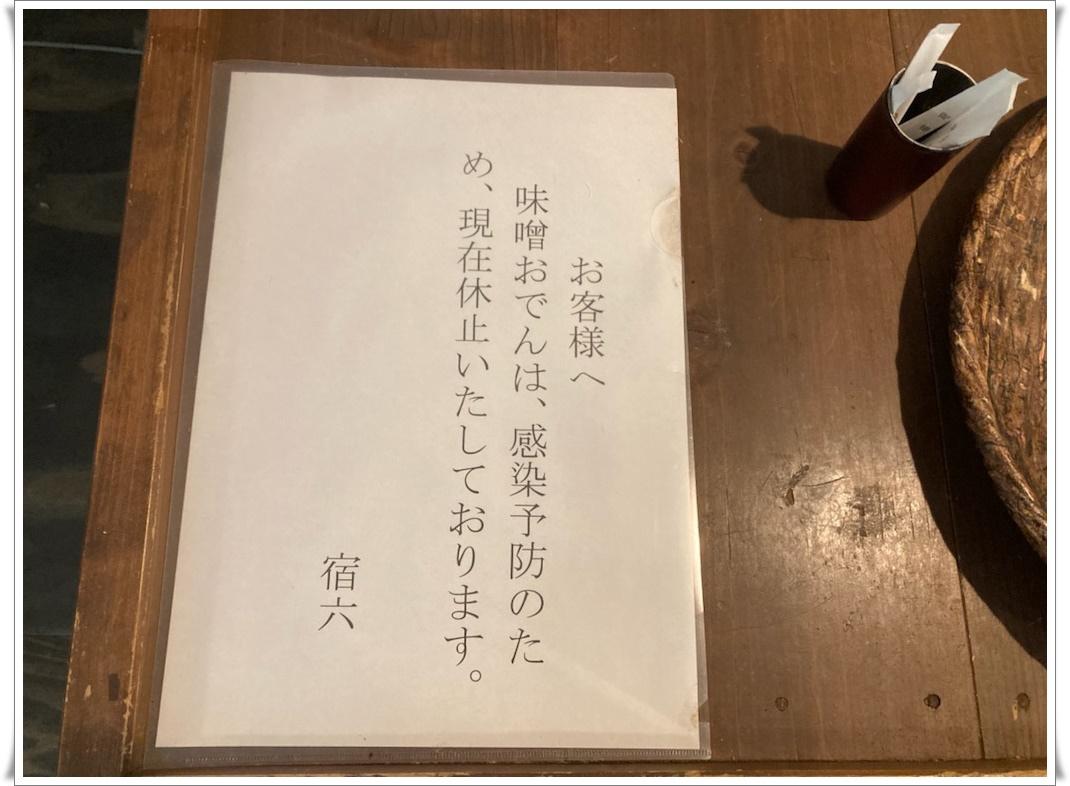 お客様へ
味噌おでんは、感染予防のた
め、現在休止いたしております。
宿六